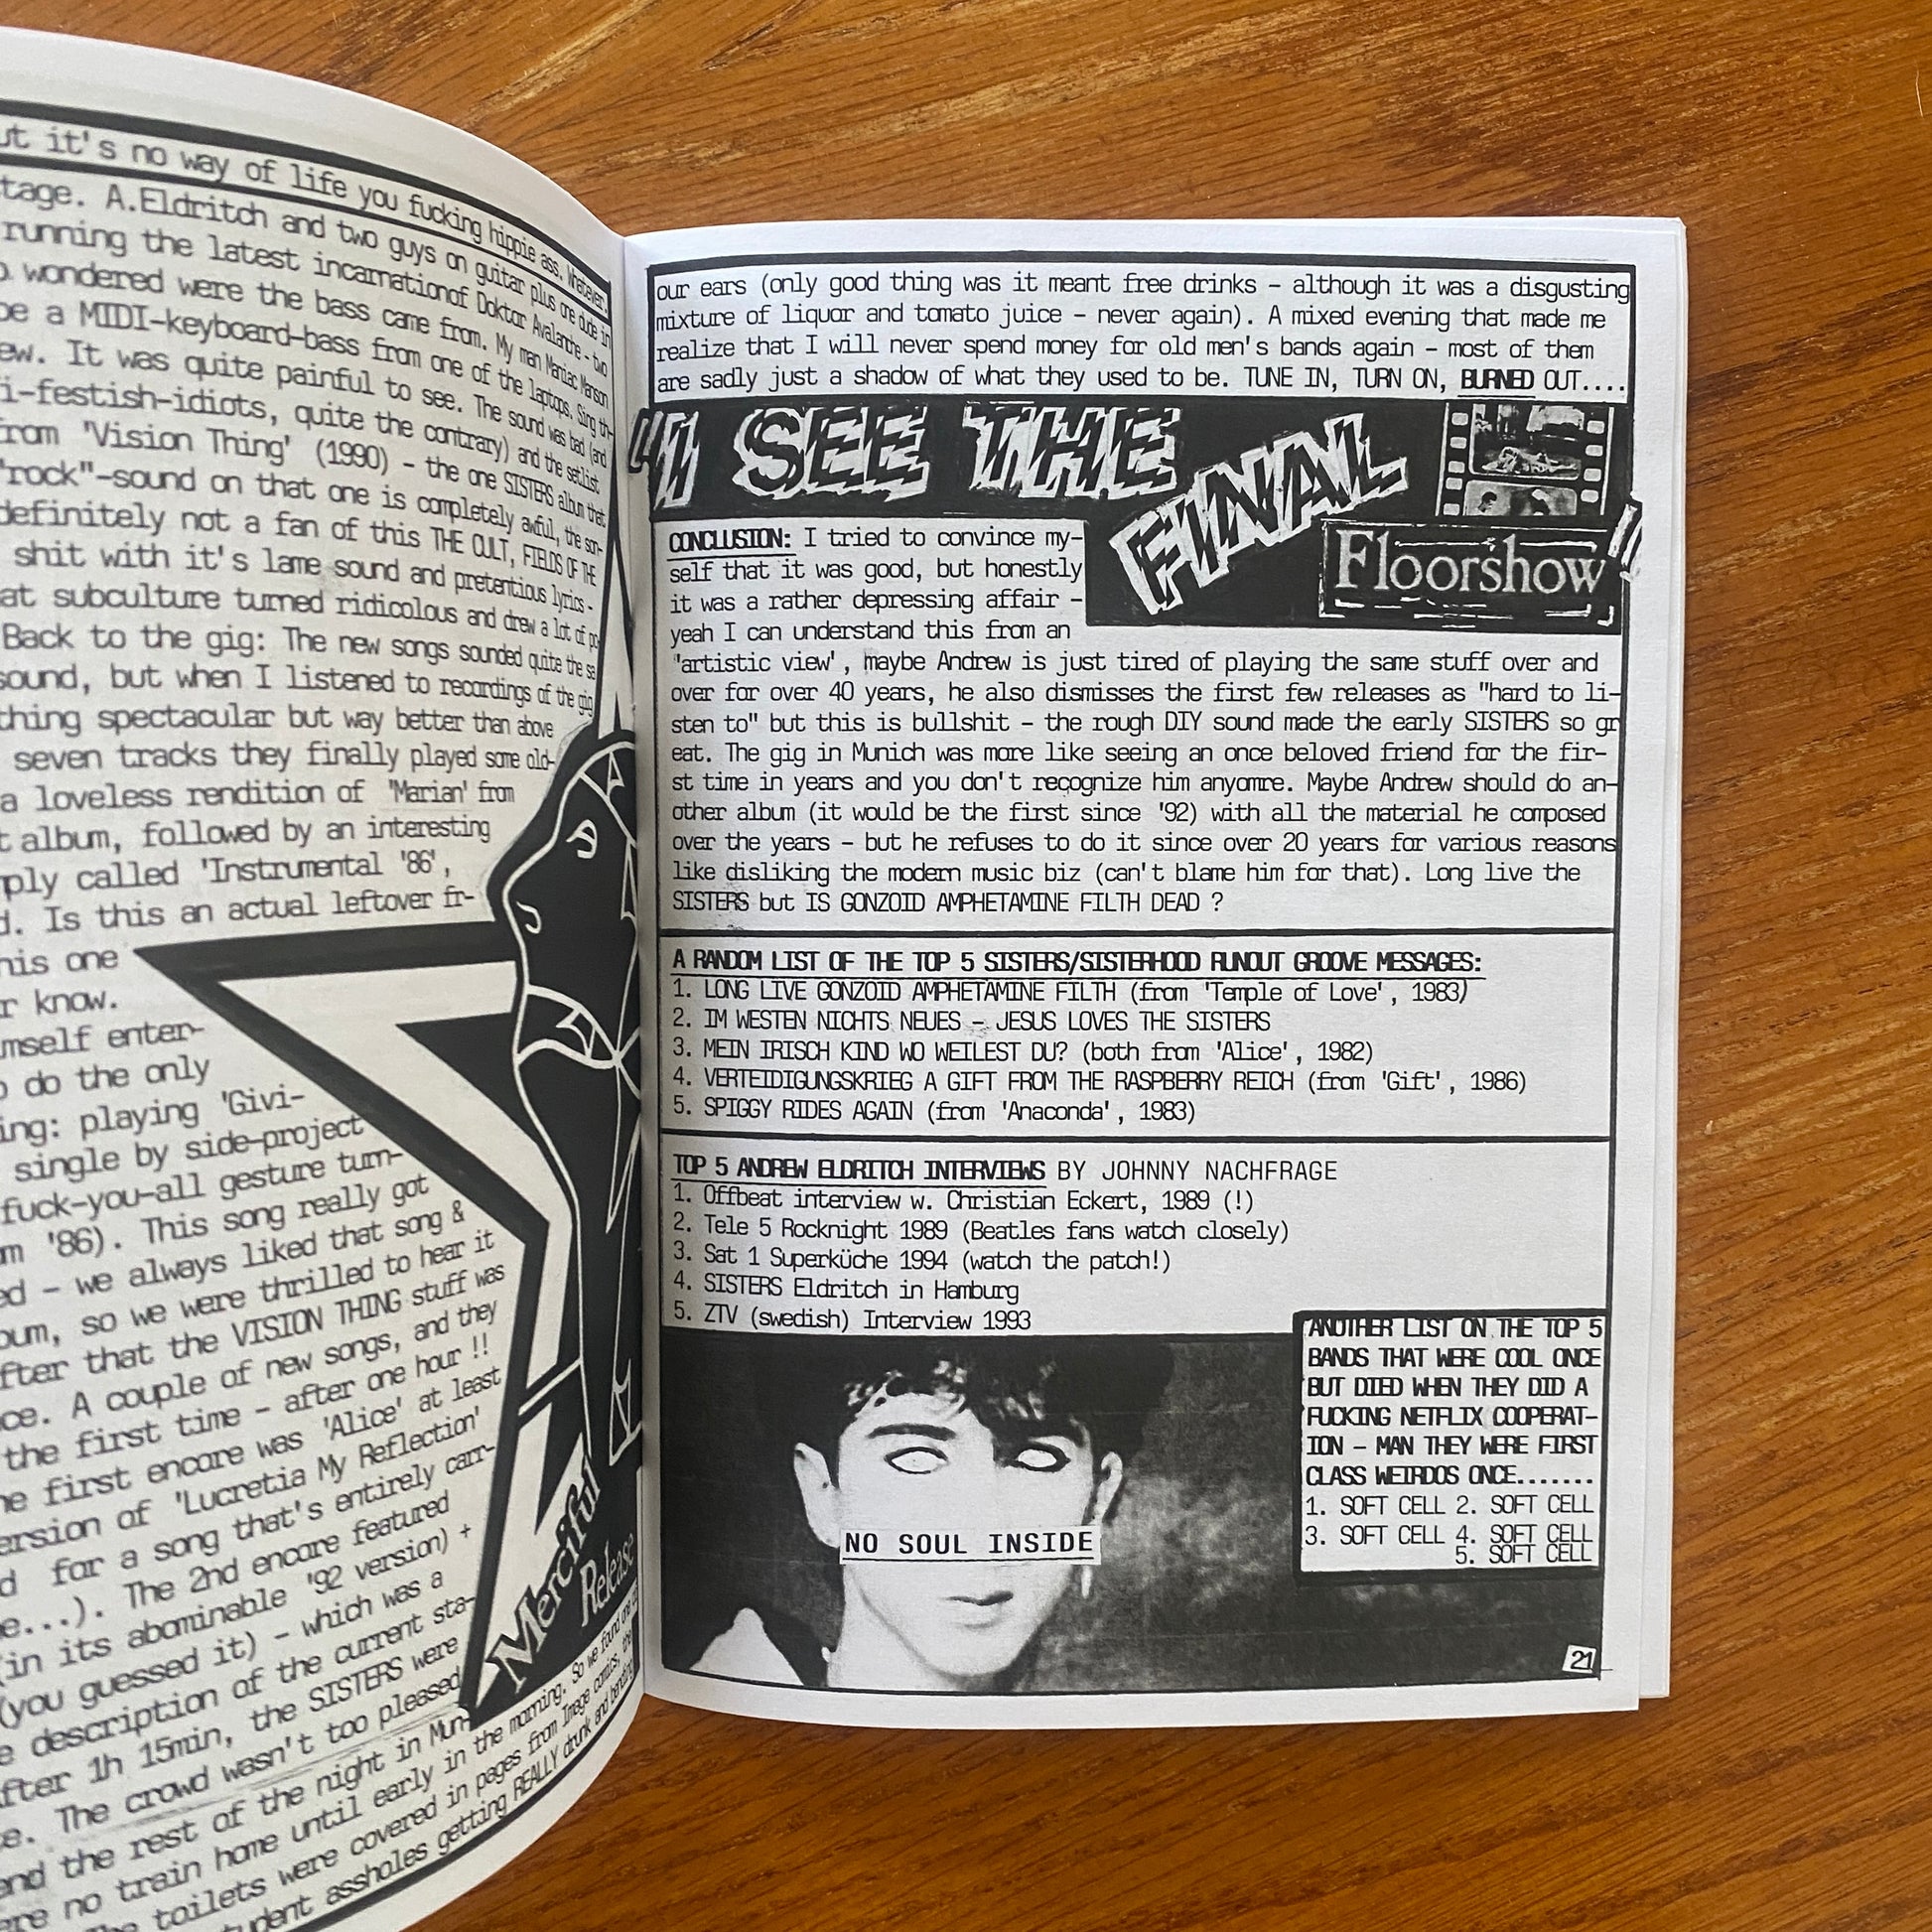 ut it's no way of life you fucking hippie ass. Whatever.
tage. A.Eldritch and two guys on guitar plus one dude in
running the latest incarnationof Doktor Avalanche - two
wondered were the bass came from. My man Maniac Manson
be a MIDI-keyboard-bass from one of the laptops. Sing th-
ew. It was quite painful to see. The sound was bad (and
i-festish-idiots, quite the contrary) and the setlist
from 'Vision Thing' (1990) - the one SISTERS album that
"rock"-sound on that one is completely awful, the son-
definitely not a fan of this THE CULT, FIELDS OF THE
shit with it's lame sound and pretentious lyrics -
at subculture turned ridicolous and drew a lot of po
Back to the gig: The new songs sounded quite the sa
sound, but when I listened to recordings of the gig
thing spectacular but way better than above
seven tracks they finally played some old-
a loveless rendition of 'Marian' from
t album, followed by an interesting
ply called 'Instrumental '86',
d. Is this an actual leftover fr-
his one
r know.
mself enter-
o do the only
ing: playing 'Givi-
single by side-project
fuck-you-all gesture turn-
m '86). This song really got
ed - we always liked that song &
bum, so we were thrilled to hear it
fter that the VISION THING stuff was
ce. A couple of new songs, and they
the first time - after one hour !!
he first encore was 'Alice' at least
ersion of 'Lucretia My Reflection'
d for a song that's entirely carr-
e...). The 2nd encore featured
(in its abominable '92 version) +
(you guessed it) - which was a
e description of the current sta-
fter 1h 15min, the SISTERS were
e. The crowd wasn't too pleased
end the rest of the night in Mun-
ere no train home until early in the morning. So we found one
he toilets were covered in pages from Image comics, the
udent assholes getting REALLY drunk and bending
Merciful
Release
our ears (only good thing was it meant free drinks - although it was a disgusting
mixture of liquor and tomato juice - never again). A mixed evening that made me
realize that I will never spend money for old men's bands again - most of them
are sadly just a shadow of what they used to be. TUNE IN, TURN ON, BURNED OUT....
"I SEE THE
FINAL
Floorshow"
CONCLUSION: I tried to convince my-
self that it was good, but honestly
it was a rather depressing affair -
yeah I can understand this from an
'artistic view', maybe Andrew is just tired of playing the same stuff over and
over for over 40 years, he also dismisses the first few releases as "hard to li-
sten to" but this is bullshit - the rough DIY sound made the early SISTERS so gr
eat. The gig in Munich was more like seeing an once beloved friend for the fir-
st time in years and you don't recognize him anyomre. Maybe Andrew should do an-
other album (it would be the first since '92) with all the material he composed
over the years - but he refuses to do it since over 20 years for various reasons
like disliking the modern music biz (can't blame him for that). Long live the
SISTERS but IS GONZOID AMPHETAMINE FILTH DEAD ?
A RANDOM LIST OF THE TOP 5 SISTERS/SISTERHOOD RUNOUT GROOVE MESSAGES:
1. LONG LIVE GONZOID AMPHETAMINE FILTH (from 'Temple of Love', 1983)
2. IM WESTEN NICHTS NEUES - JESUS LOVES THE SISTERS
3. MEIN IRISCH KIND WO WEILEST DU? (both from 'Alice', 1982)
4. VERTEIDIGUNGSKRIEG A GIFT FROM THE RASPBERRY REICH (from 'Gift', 1986)
5. SPIGGY RIDES AGAIN (from 'Anaconda', 1983)
TOP 5 ANDREW ELDRITCH INTERVIEWS BY JOHNNY NACHFRAGE
1. Offbeat interview w. Christian Eckert, 1989 (!)
2. Tele 5 Rocknight 1989 (Beatles fans watch closely)
3. Sat 1 Superküche 1994 (watch the patch!)
4. SISTERS Eldritch in Hamburg
5. ZTV (swedish) Interview 1993
ANOTHER LIST ON THE TOP 5
BANDS THAT WERE COOL ONCE
BUT DIED WHEN THEY DID A
FUCKING NETFLIX COOPERAT-
ION - MAN THEY WERE FIRST
CLASS WEIRDOS ONCE.......
1. SOFT CELL 2. SOFT CELL
3. SOFT CELL 4. SOFT CELL
5. SOFT CELL
NO SOUL INSIDE
21